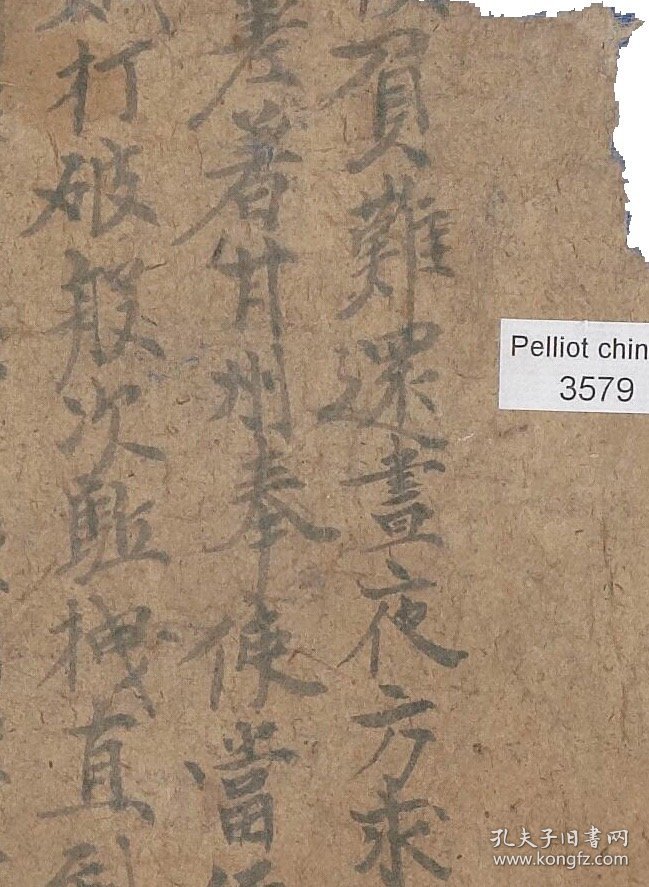 負難還晝夜方求
差著甘州奉使當
打破般次駈機直到
Pelliot chin
3579
孔夫子旧書网
www.kongfz.com